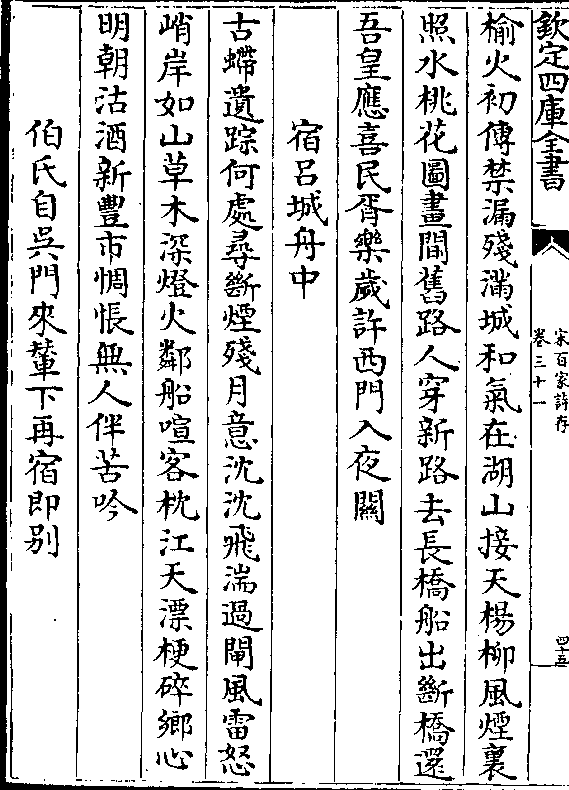 欽定四庫全書
宋百家詩存
卷三十一
四十五
榆火初傳禁漏殘滿城和氣在湖山接天楊柳風煙裏
照水桃花圖畫間舊路人穿新路去長橋船出斷橋還
吾皇應喜民胥樂歲許西門入夜關
宿呂城舟中
古蠕遺踪何處尋斷煙殘月意沈沈飛湍過閘風雷怒
峭岸如山草木深燈火鄰船喧客枕江天漂梗碎鄉心
明朝沽酒新豐市惆悵無人伴苦吟
伯氏自吳門來輦下再宿即別